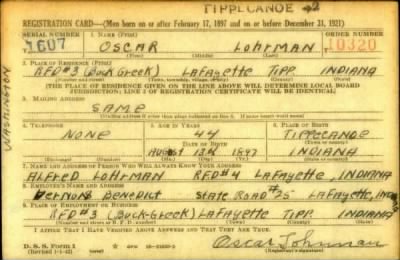 TIPPECANOE 2
REGISTRATION CARD—(Men born on or after February 17, 1897 and on or before December 31, 1921)
SERIAL NUMBER 1. NAME (Print) ORDER NUMBER
1607 OSCAR LOHRMAN 10320
(First) (Middle) (Last)
2. PLACE OF RESIDENCE (Print)
RFD#3 (Buck Greek) LAFAYETTE TIPP. INDIANA
(Number and street) (Town, township, village, or city) (County) (State)
[THE PLACE OF RESIDENCE GIVEN ON THE LINE ABOVE WILL DETERMINE LOCAL BOARD
JURISDICTION; LINE 2 OF REGISTRATION CERTIFICATE WILL BE IDENTICAL]
3. MAILING ADDRESS
SAME
[Mailing address if other than place indicated on line 2. If same insert word same]
4. TELEPHONE 5. AGE IN YEARS 6. PLACE OF BIRTH
NONE 44 TIPPECANOE
DATE OF BIRTH (Town or county)
AUGUST 13th 1897 INDIANA
(Exchange) (Number) (Mo.) (Day) (Yr.) (State or country)
7. NAME AND ADDRESS OF PERSON WHO WILL ALWAYS KNOW YOUR ADDRESS
ALFRED LOHRMAN RFD#4 LAFAYETTE, INDIANA
8. EMPLOYER'S NAME AND ADDRESS
VERNON BENEDICT STATE ROAD #25 LAFAYETTE, IND
9. PLACE OF EMPLOYMENT OR BUSINESS
RFD#3 (BUCK-GREEK) LAFAYETTE TIPP. INDIANA
(Number and street or R. F. D. number) (Town) (County) (State)
I AFFIRM THAT I HAVE VERIFIED ABOVE ANSWERS AND THAT THEY ARE TRUE.
D. S. S. Form 1
(Revised 1-1-42) (over)
Oscar Lohrman
WASHINGTON